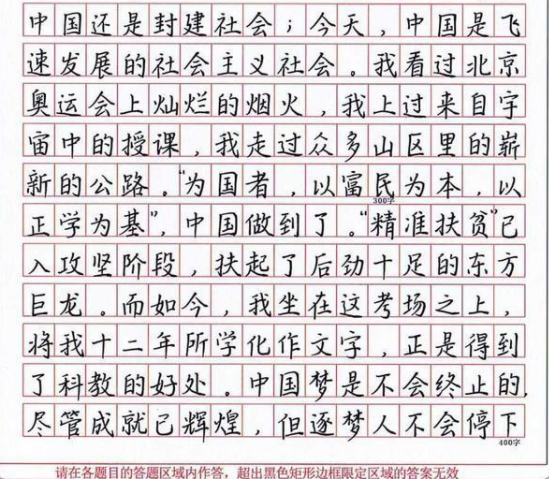 中国还是封建社会；今天，中国是飞
速发展的社会主义社会。我看过北京
奥运会上灿烂的烟火，我上过来自宇
宙中的授课，我走过众多山区里的崭
新的公路。“为国者，以富民为本，以
300字
正学为基”，中国做到了。“精准扶贫”已
入攻坚阶段，扶起了后劲十足的东方
巨龙。而如今，我坐在这考场之上，
将我十二年所学化作文字，正是得到
了科教的好处。中国梦是不会终止的，
尽管成就已辉煌，但逐梦人不会停下
400字
请在各题目的答题区域内作答，超出黑色矩形边框限定区域的答案无效